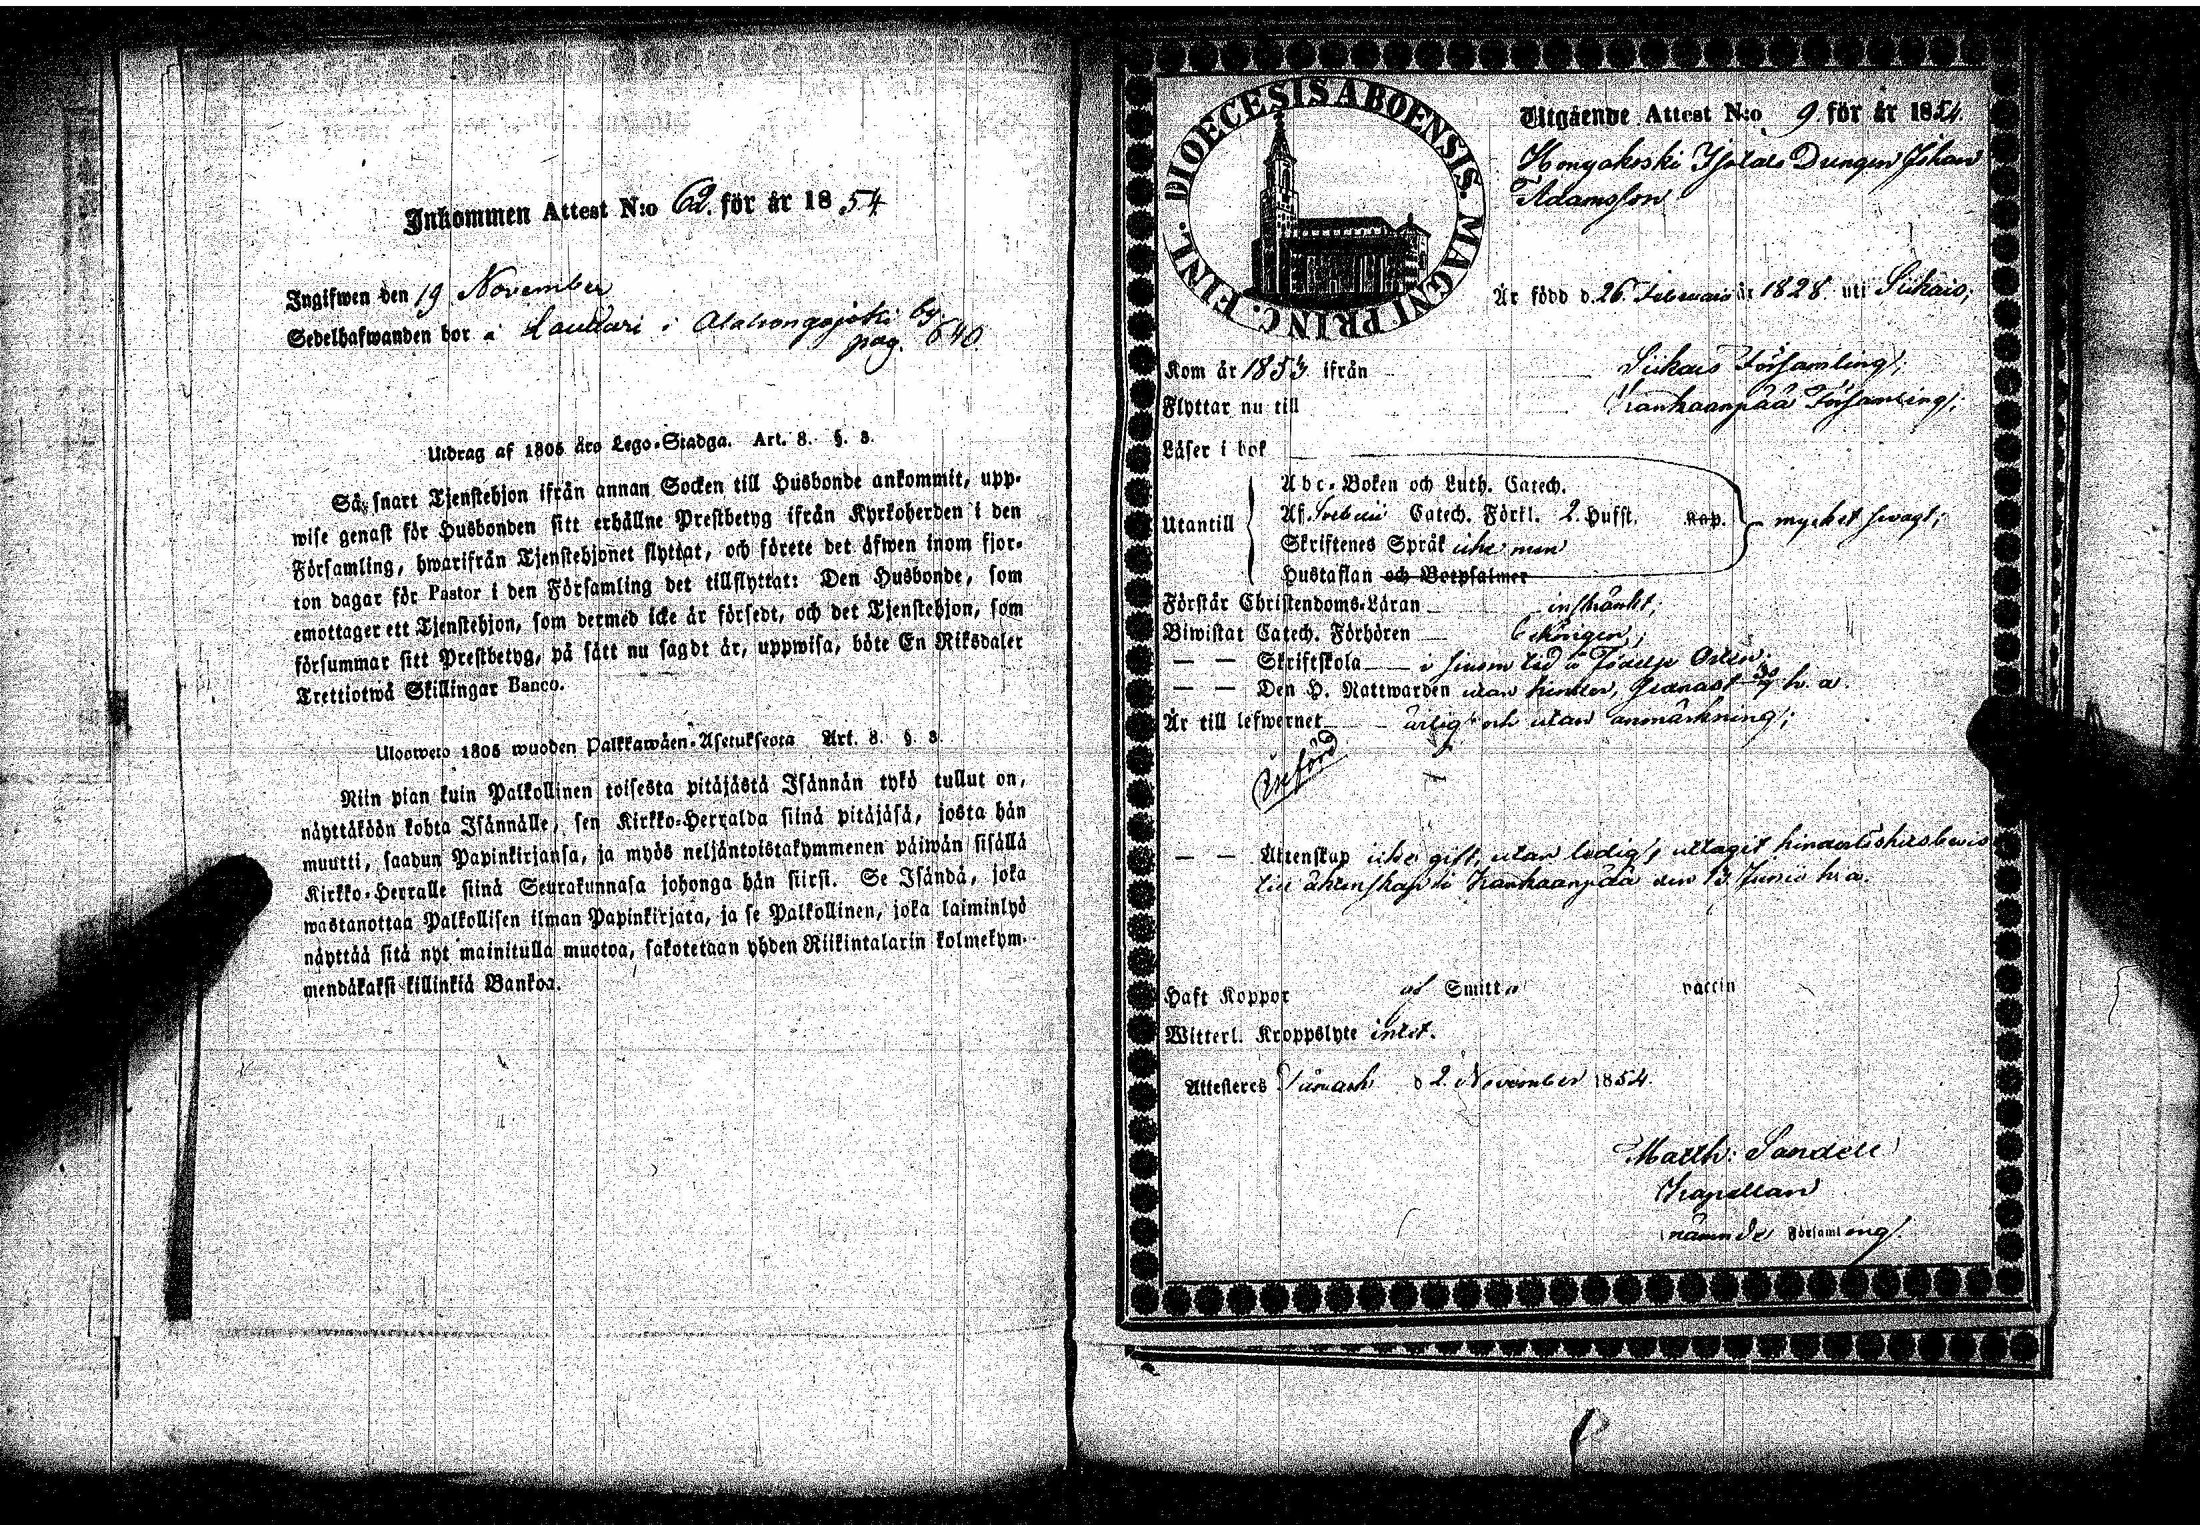 Inkommen Attest N:o 62. för år 1854
Ingifwen den 19 November
Sedelhafwanden bor å Lauduri i Alahongojoki by.
pag. 640.
Utdrag af 1805 års Lego-Stadga. Art. 8. §. 3.
Så snart Tjenstehjon ifrån annan Socken till Husbonde ankommit, upp-
wise genast för Husbonden sitt erhållne Prestbetyg ifrån Kyrkoherden i den
Församling, hwarifrån Tjenstehjonet flyttat, och förete det äfwen inom fjor-
ton dagar för Pastor i den Församling det tillflyttat: Den Husbonde, som
emottager ett Tjenstehjon, som dermed icke är försedt, och det Tjenstehjon, som
försummar sitt Prestbetyg, på sätt nu sagdt är, uppwisa, böte En Riksdaler
Trettiotwå Skillingar Banco.
Ulosweto 1805 wuoden Palkkawäen-Asetuksesta Art. 8. §. 3.
Niin pian kuin Palkollinen toisesta pitäjästä Isännän tykö tullut on,
näyttäköön kohta Isännälle, sen Kirkko-Herralda siinä pitäjäsä, josta hän
muutti, saadun Papinkirjansa, ja myös neljäntoistakymmenen päiwän sisällä
Kirkko-Herralle siinä Seurakunnasa johonga hän siirsi. Se Isändä, joka
wastanottaa Palkollisen ilman Papinkirjata, ja se Palkollinen, joka laiminlyö
näyttää sitä nyt mainitulla muotoa, sakotetaan yhden Riikintalarin kolmekym-
mendäkaksi killinkiä Bankoa.
DIOECESIS ABOENSIS. MAGNI PRINC. FINL.
Utgående Attest N:o 9 för år 1854.
Hongakoski Drengen Johan
Adamsson
Är född d. 26. Februarii år 1828. uti Siikais;
Kom år 1853 ifrån Siikais Församling;
Flyttar nu till Kankaanpää Församling;
Läser i bok
Abc-Boken och Luth. Catech.
Utantill Af Svebelii Catech. Förkl. 2. Hufst. Kap. mycket swagt;
Skriftenes Språk icke men
Hustaflan och Botpsalmer
Förstår Christendoms-Läran inskränkt;
Biwistat Catech. Förhören
— — Skriftskola i sinom tid å Orten;
— — Den H. Nattwarden utan hinder, h. a.
Är till lefwernet ärlig och utan anmärkning;
Införd
— — Äktenskap icke gift, utan ledig, uttagit hinderlöshetsbewis
till äktenskap i Kankaanpää den 13 Junii h. a.
Haft Koppor af Smitta vaccin
Witterl. Kroppslyte intet.
Attesteres d 2. November 1854.
Matth: Sandell
Kapellan
nämnde Församling.